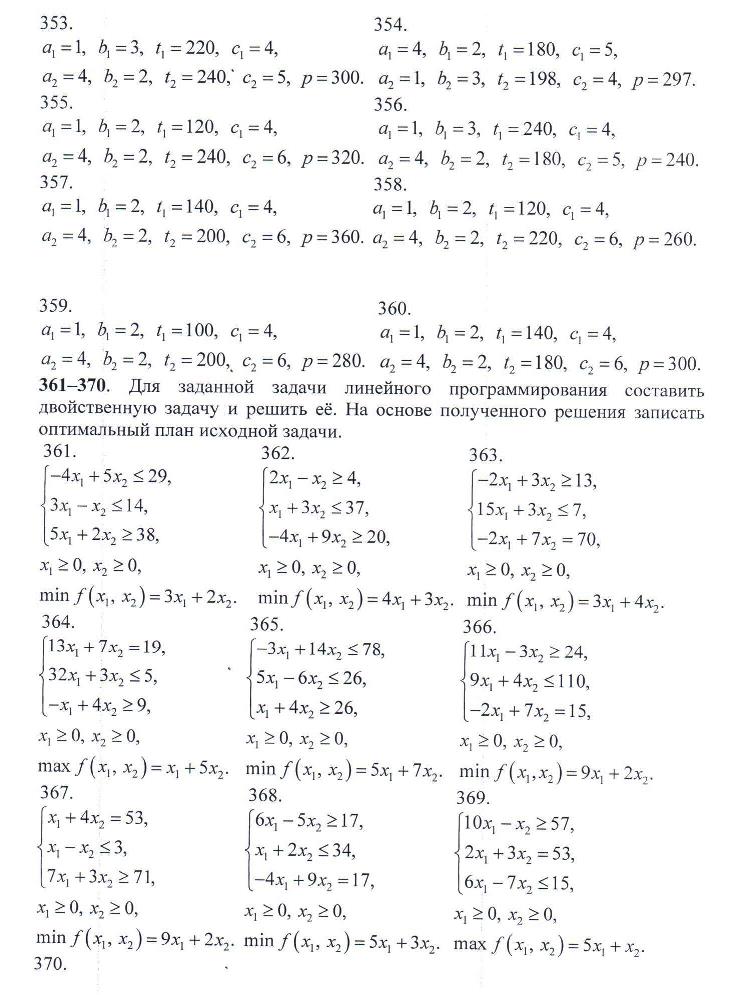 353.
a₁ = 1, b₁ = 3, t₁ = 220, c₁ = 4,
a₂ = 4, b₂ = 2, t₂ = 240, c₂ = 5, p = 300.
354.
a₁ = 4, b₁ = 2, t₁ = 180, c₁ = 5,
a₂ = 1, b₂ = 3, t₂ = 198, c₂ = 4, p = 297.
355.
a₁ = 1, b₁ = 2, t₁ = 120, c₁ = 4,
a₂ = 4, b₂ = 2, t₂ = 240, c₂ = 6, p = 320.
356.
a₁ = 1, b₁ = 3, t₁ = 240, c₁ = 4,
a₂ = 4, b₂ = 2, t₂ = 180, c₂ = 5, p = 240.
357.
a₁ = 1, b₁ = 2, t₁ = 140, c₁ = 4,
a₂ = 4, b₂ = 2, t₂ = 200, c₂ = 6, p = 360.
358.
a₁ = 1, b₁ = 2, t₁ = 120, c₁ = 4,
a₂ = 4, b₂ = 2, t₂ = 220, c₂ = 6, p = 260.
359.
a₁ = 1, b₁ = 2, t₁ = 100, c₁ = 4,
a₂ = 4, b₂ = 2, t₂ = 200, c₂ = 6, p = 280.
360.
a₁ = 1, b₁ = 2, t₁ = 140, c₁ = 4,
a₂ = 4, b₂ = 2, t₂ = 180, c₂ = 6, p = 300.
361–370. Для заданной задачи линейного программирования составить
двойственную задачу и решить её. На основе полученного решения записать
оптимальный план исходной задачи.
361.
−4x₁ + 5x₂ ≤ 29,
3x₁ − x₂ ≤ 14,
5x₁ + 2x₂ ≥ 38,
x₁ ≥ 0, x₂ ≥ 0,
min f(x₁, x₂) = 3x₁ + 2x₂.
362.
2x₁ − x₂ ≥ 4,
x₁ + 3x₂ ≤ 37,
−4x₁ + 9x₂ ≥ 20,
x₁ ≥ 0, x₂ ≥ 0,
min f(x₁, x₂) = 4x₁ + 3x₂.
363.
−2x₁ + 3x₂ ≥ 13,
15x₁ + 3x₂ ≤ 7,
−2x₁ + 7x₂ = 70,
x₁ ≥ 0, x₂ ≥ 0,
min f(x₁, x₂) = 3x₁ + 4x₂.
364.
13x₁ + 7x₂ = 19,
32x₁ + 3x₂ ≤ 5,
−x₁ + 4x₂ ≥ 9,
x₁ ≥ 0, x₂ ≥ 0,
max f(x₁, x₂) = x₁ + 5x₂.
365.
−3x₁ + 14x₂ ≤ 78,
5x₁ − 6x₂ ≤ 26,
x₁ + 4x₂ ≥ 26,
x₁ ≥ 0, x₂ ≥ 0,
min f(x₁, x₂) = 5x₁ + 7x₂.
366.
11x₁ − 3x₂ ≥ 24,
9x₁ + 4x₂ ≤ 110,
−2x₁ + 7x₂ = 15,
x₁ ≥ 0, x₂ ≥ 0,
min f(x₁, x₂) = 9x₁ + 2x₂.
367.
x₁ + 4x₂ = 53,
x₁ − x₂ ≤ 3,
7x₁ + 3x₂ ≥ 71,
x₁ ≥ 0, x₂ ≥ 0,
min f(x₁, x₂) = 9x₁ + 2x₂.
368.
6x₁ − 5x₂ ≥ 17,
x₁ + 2x₂ ≤ 34,
−4x₁ + 9x₂ = 17,
x₁ ≥ 0, x₂ ≥ 0,
min f(x₁, x₂) = 5x₁ + 3x₂.
369.
10x₁ − x₂ ≥ 57,
2x₁ + 3x₂ = 53,
6x₁ − 7x₂ ≤ 15,
x₁ ≥ 0, x₂ ≥ 0,
max f(x₁, x₂) = 5x₁ + x₂.
370.